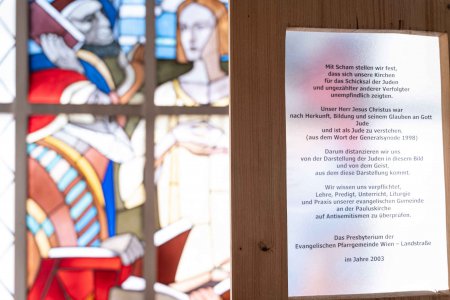 Mit Scham stellen wir fest,
dass sich unsere Kirchen
für das Schicksal der Juden
und ungezählter anderer Verfolgter
unempfindlich zeigten.
Unser Herr Jesus Christus war
nach Herkunft, Bildung und seinem Glauben an Gott
Jude
und ist als Jude zu verstehen.
(aus dem Wort der Generalsynode 1998)
Darum distanzieren wir uns
von der Darstellung der Juden in diesem Bild
und von dem Geist,
aus dem diese Darstellung kommt.
Wir wissen uns verpflichtet,
Lehre, Predigt, Unterricht, Liturgie
und Praxis unserer evangelischen Gemeinde
an der Pauluskirche
auf Antisemitismen zu überprüfen.
Das Presbyterium der
Evangelischen Pfarrgemeinde Wien – Landstraße
im Jahre 2003